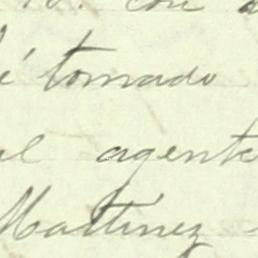 con
é tomado
al agente
Martinez